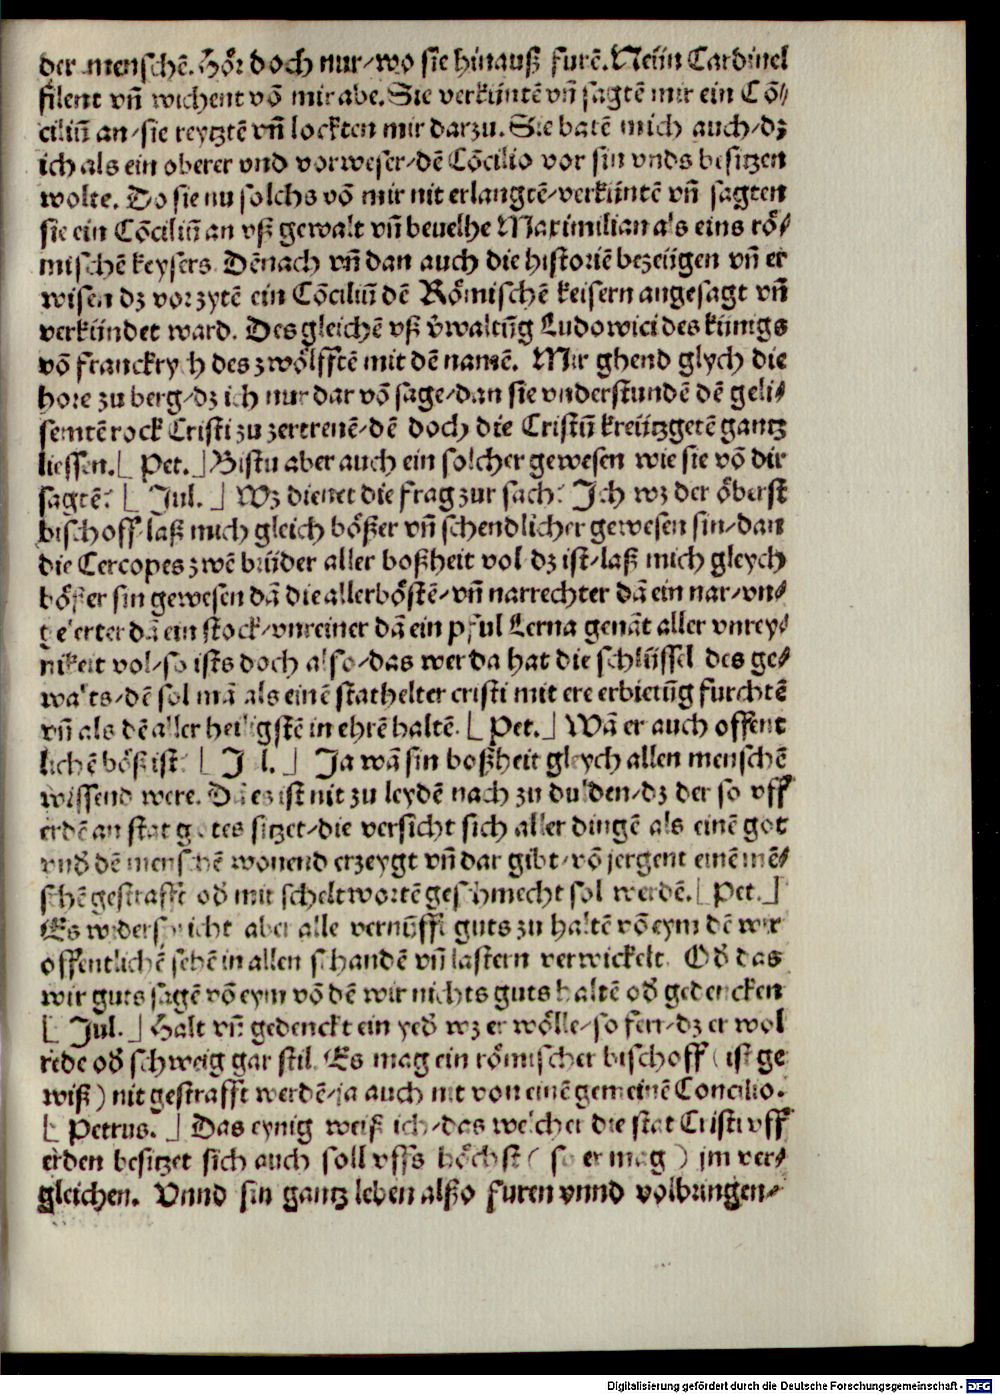 der menschē. Hör doch nur/wo sie hinauß furē. Neün Cardinel
filent vñ wichent võ mir abe. Sie verküntē vñ sagtē mir ein Cõ//
ciliū an/sie reytztē vñ lockten mir darzu. Sie batē mich auch/dz
ich als ein oberer vnd vorweser/dē Cõcilio vor sin vnds besitzen
wolte. Do sie nu solchs võ mir nit erlangtē/verküntē vñ sagten
sie ein Cõciliū an vß gewalt vñ beuelhe Maximilian als eins rö/
mischē keysers. Dēnach vñ dan auch die historiē bezeügen vñ er
wisen dz vor zytē ein Cõciliū dē Römischē keisern angesagt vñ
verkündet ward. Des gleichē vß v̄waltūg Ludowici des künigs
võ franckrych des zwölfftē mit dē namē. Mir ghend glych die
hore zu berg/dz ich nur dar võ sage/dan sie vnderstundē dē geli/
semtē rock Cristi zu zertrenē/dē doch die Cristū kreützgetē gantz
liessen. [Pet.] Bistu aber auch ein solcher gewesen wie sie võ dir
sagtē? [Jul.] Wz dienet die frag zur sach? Ich wz der öberst
bischoff/laß mich gleich bößer vñ schendlicher gewesen sin/dan
die Cercopes zwē brüder aller boßheit vol dz ist/laß mich gleych
bößer sin gewesen dā die allerböstē/vñ narrechter dā ein nar/vn/
gelerter dā ein stock/vnreiner dā ein pful Lerna genāt aller vnrey/
nikeit vol/so ists doch also/das wer da hat die schlüssel des ge/
walts/dē sol mā als einē stathelter cristi mit ere erbietūg furchtē
vñ als dē aller heiligstē in ehrē haltē. [Pet.] Wā er auch offent
lichē böß ist? [Jul.] Ja wā sin boßheit gleych allen menschē
wissend were. Dā es ist nit zu leydē nach zu dulden/dz der so vff
erdē an stat gotes sitzet/die versicht sich aller dingē als einē got
vnd̄ dē menschē wonend erzeygt vñ dar gibt/võ jergent einē mē/
schē gestrafft od̄ mit scheltwortē geschmecht sol werdē. [Pet.]
Es widerspricht aber alle vernūfft guts zu haltē võ eym dē wir
offentlichē sehē in allen schandē vñ lastern verwickelt. Od̄ das
wir guts sagē võ eym võ dē wir nichts guts haltē od̄ gedencken
[Jul.] Halt vñ gedenckt ein yed̄ wz er wölle/so fern/dz er wol
rede od̄ schweig gar stil. Es mag ein römischer bischoff (ist ge
wiß) nit gestrafft werdē/ja auch nit von einē gemeinē Concilio.
[Petrus.] Das eynig weiß ich/das welcher die stat Cristi vff
erden besitzet sich auch soll vffs höchst (so er mag) jm ver/
gleichen. Vnnd sin gantz leben alßo furen vnnd volbringen/
Digitalisierung gefördert durch die Deutsche Forschungsgemeinschaft - DFG